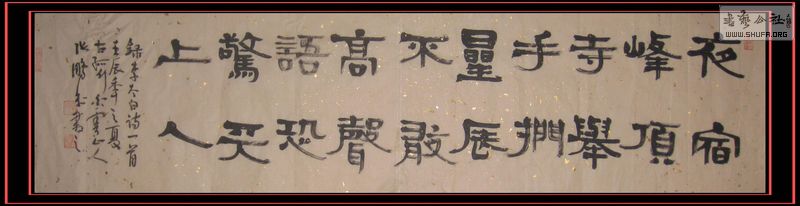 夜宿
峰頂
寺舉
手捫
星辰
不敢
高聲
語恐
驚天
上人
錄李太白詩一首
壬辰年之夏
書藝公社
WWW.SHUFA.ORG